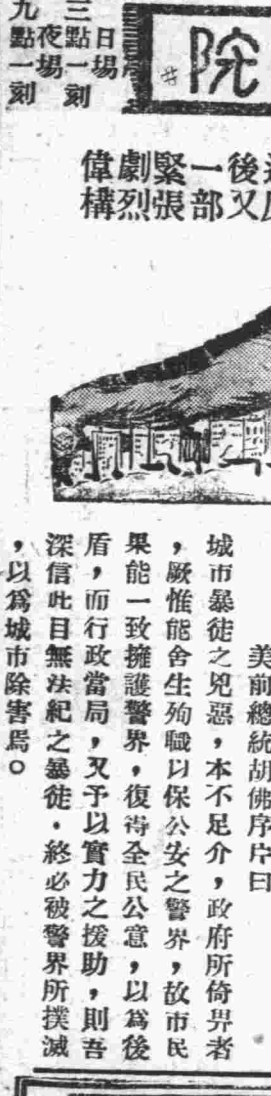 院
日場
三點一刻
夜場
九點一刻
後又
一部
緊張
劇烈
偉構
美前總統胡佛序片曰
城市暴徒之兇惡，本不足介，政府所倚畀者
，厥惟能舍生殉職以保公安之警界，故市民
果能一致擁護警界，復得全民公意，以爲後
盾，而行政當局，又予以實力之援助，則吾
深信此目無法紀之暴徒．終必被警界所撲滅
，以爲城市除害焉。